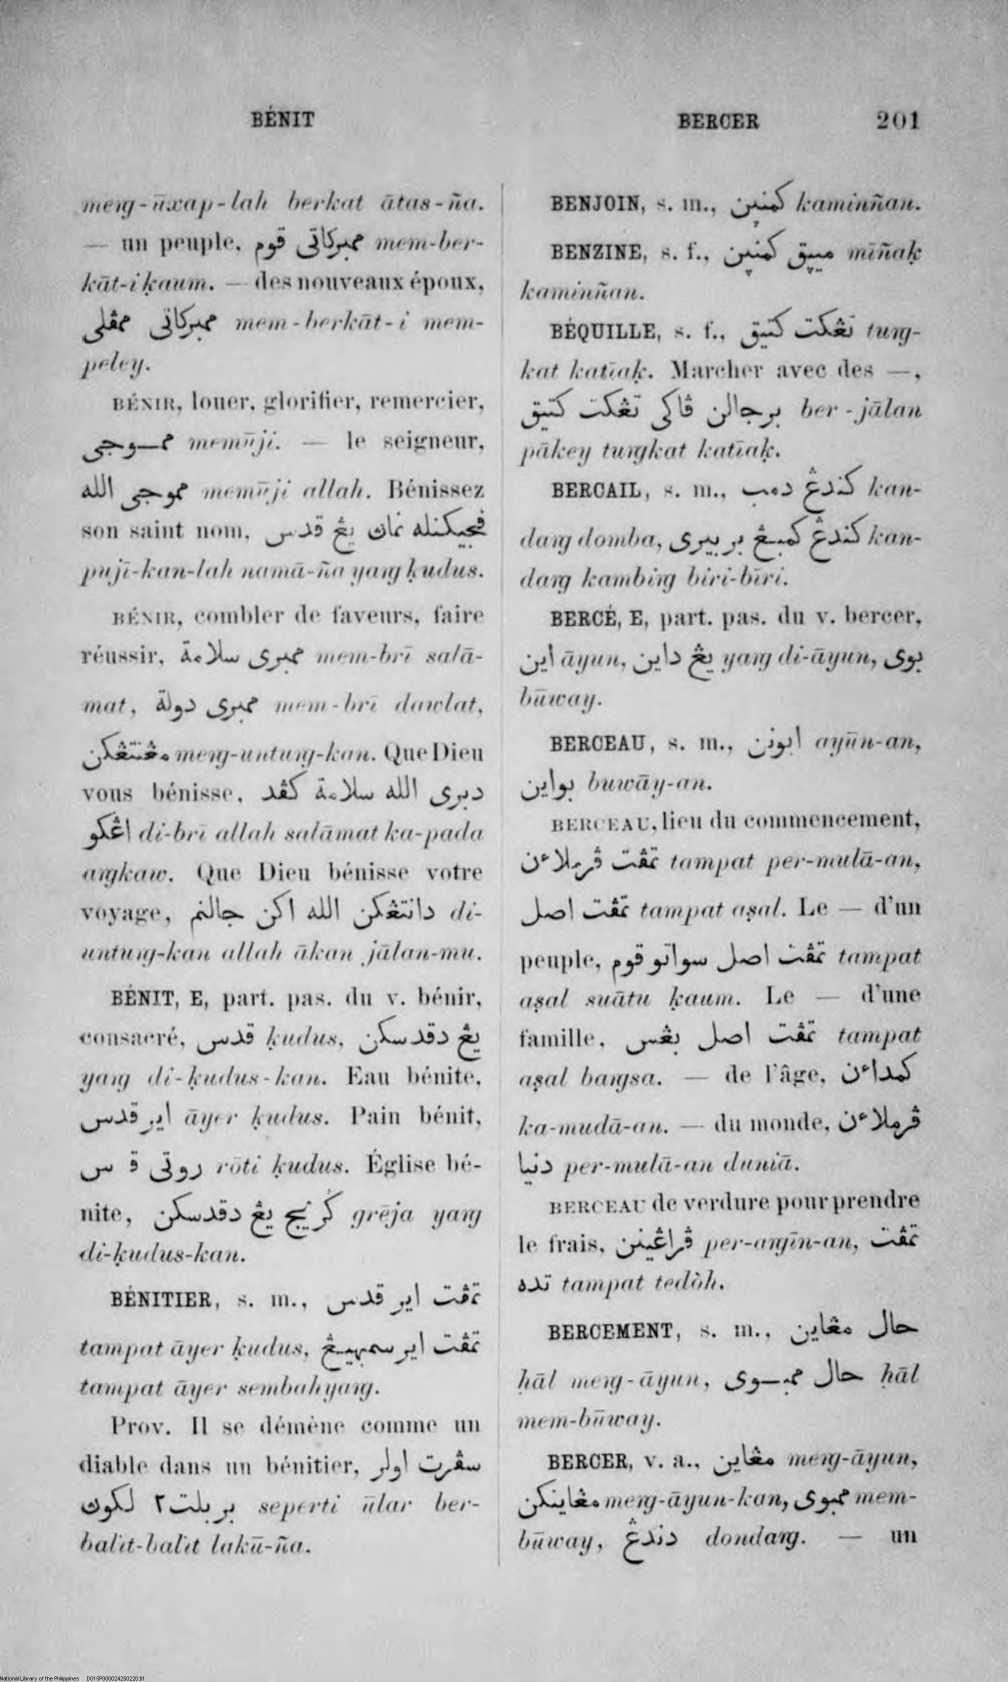 BÉNIT
BERCER 201
meng-ūxap-lah berkat ātas-ña.
— un peuple, ممبركاتي قوم mem-ber-
kāt-i ḳaum. — des nouveaux époux,
ممبركاتي ممڤلي mem-berkāt-i mem-
peley.
BÉNIR, louer, glorifier, remercier,
مموجي memūji. — le seigneur,
مموجي الله memūji allah. Bénissez
son saint nom, فجيكنله نمان يڠ قدس
puji-kan-lah namā-ña yang ḳudus.
BÉNIR, combler de faveurs, faire
réussir, ممبري سلامة mem-brī salā-
mat, ممبري دولة mem-brī dawlat,
مڠنتڠكن meng-untung-kan. Que Dieu
vous bénisse, دبري الله سلامة كڤد
اڠكو di-brī allah salāmat ka-pada
angkaw. Que Dieu bénisse votre
voyage, دانتڠكن الله اكن جالنم di-
untung-kan allah ākan jālan-mu.
BÉNIT, E, part. pas. du v. bénir,
consacré, قدس ḳudus, يڠ دقدسكن
yang di-ḳudus-kan. Eau bénite,
اير قدس āyer ḳudus. Pain bénit,
روتي ق س rōti ḳudus. Église bé-
nite, كريج يڠ دقدسكن grēja yang
di-ḳudus-kan.
BÉNITIER, s. m., تمڤت اير قدس
tampat āyer ḳudus, تمڤت اير سمبهيڠ
tampat āyer sembahyang.
Prov. Il se démène comme un
diable dans un bénitier, سڤرت اولر
بربلت٢ لكون seperti ūlar ber-
balit-balit lakū-ña.
BENJOIN, s. m., كمنين kaminñan.
BENZINE, s. f., ميڽق كمنين mīñaḳ
kaminñan.
BÉQUILLE, s. f., تڠكت كتيق tung-
kat katīaḳ. Marcher avec des —,
برجالن ڤاكي تڠكت كتيق ber-jālan
pākey tungkat katīaḳ.
BERCAIL, s. m., كندڠ دمب kan-
dang domba, كندڠ كمبڠ بربيري kan-
dang kambing biri-bīri.
BERCÉ, E, part. pas. du v. bercer,
اين āyun, يڠ داين yang di-āyun, بوي
būway.
BERCEAU, s. m., ايونن ayūn-an,
بواين buwāy-an.
BERCEAU, lieu du commencement,
تمڤت ڤرملاءن tampat per-mulā-an,
تمڤت اصل tampat aṣal. Le — d'un
peuple, تمڤت اصل سواتو قوم tampat
aṣal suātu ḳaum. Le — d'une
famille, تمڤت اصل بڠس tampat
aṣal bangsa. — de l'âge, كمداءن
ka-mudā-an. — du monde, ڤرملاءن
دنيا per-mulā-an duniā.
BERCEAU de verdure pour prendre
le frais, ڤراڠينن per-angīn-an, تمڤت
تده tampat tedòh.
BERCEMENT, s. m., حال مڠاين
ḥāl meng-āyun, حال ممبوي ḥāl
mem-būway.
BERCER, v. a., مڠاين meng-āyun,
مڠاينكن meng-āyun-kan, ممبوي mem-
būway, دندڠ dondang. — un
National Library of the Philippines